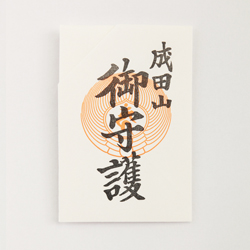 成田山
御守護